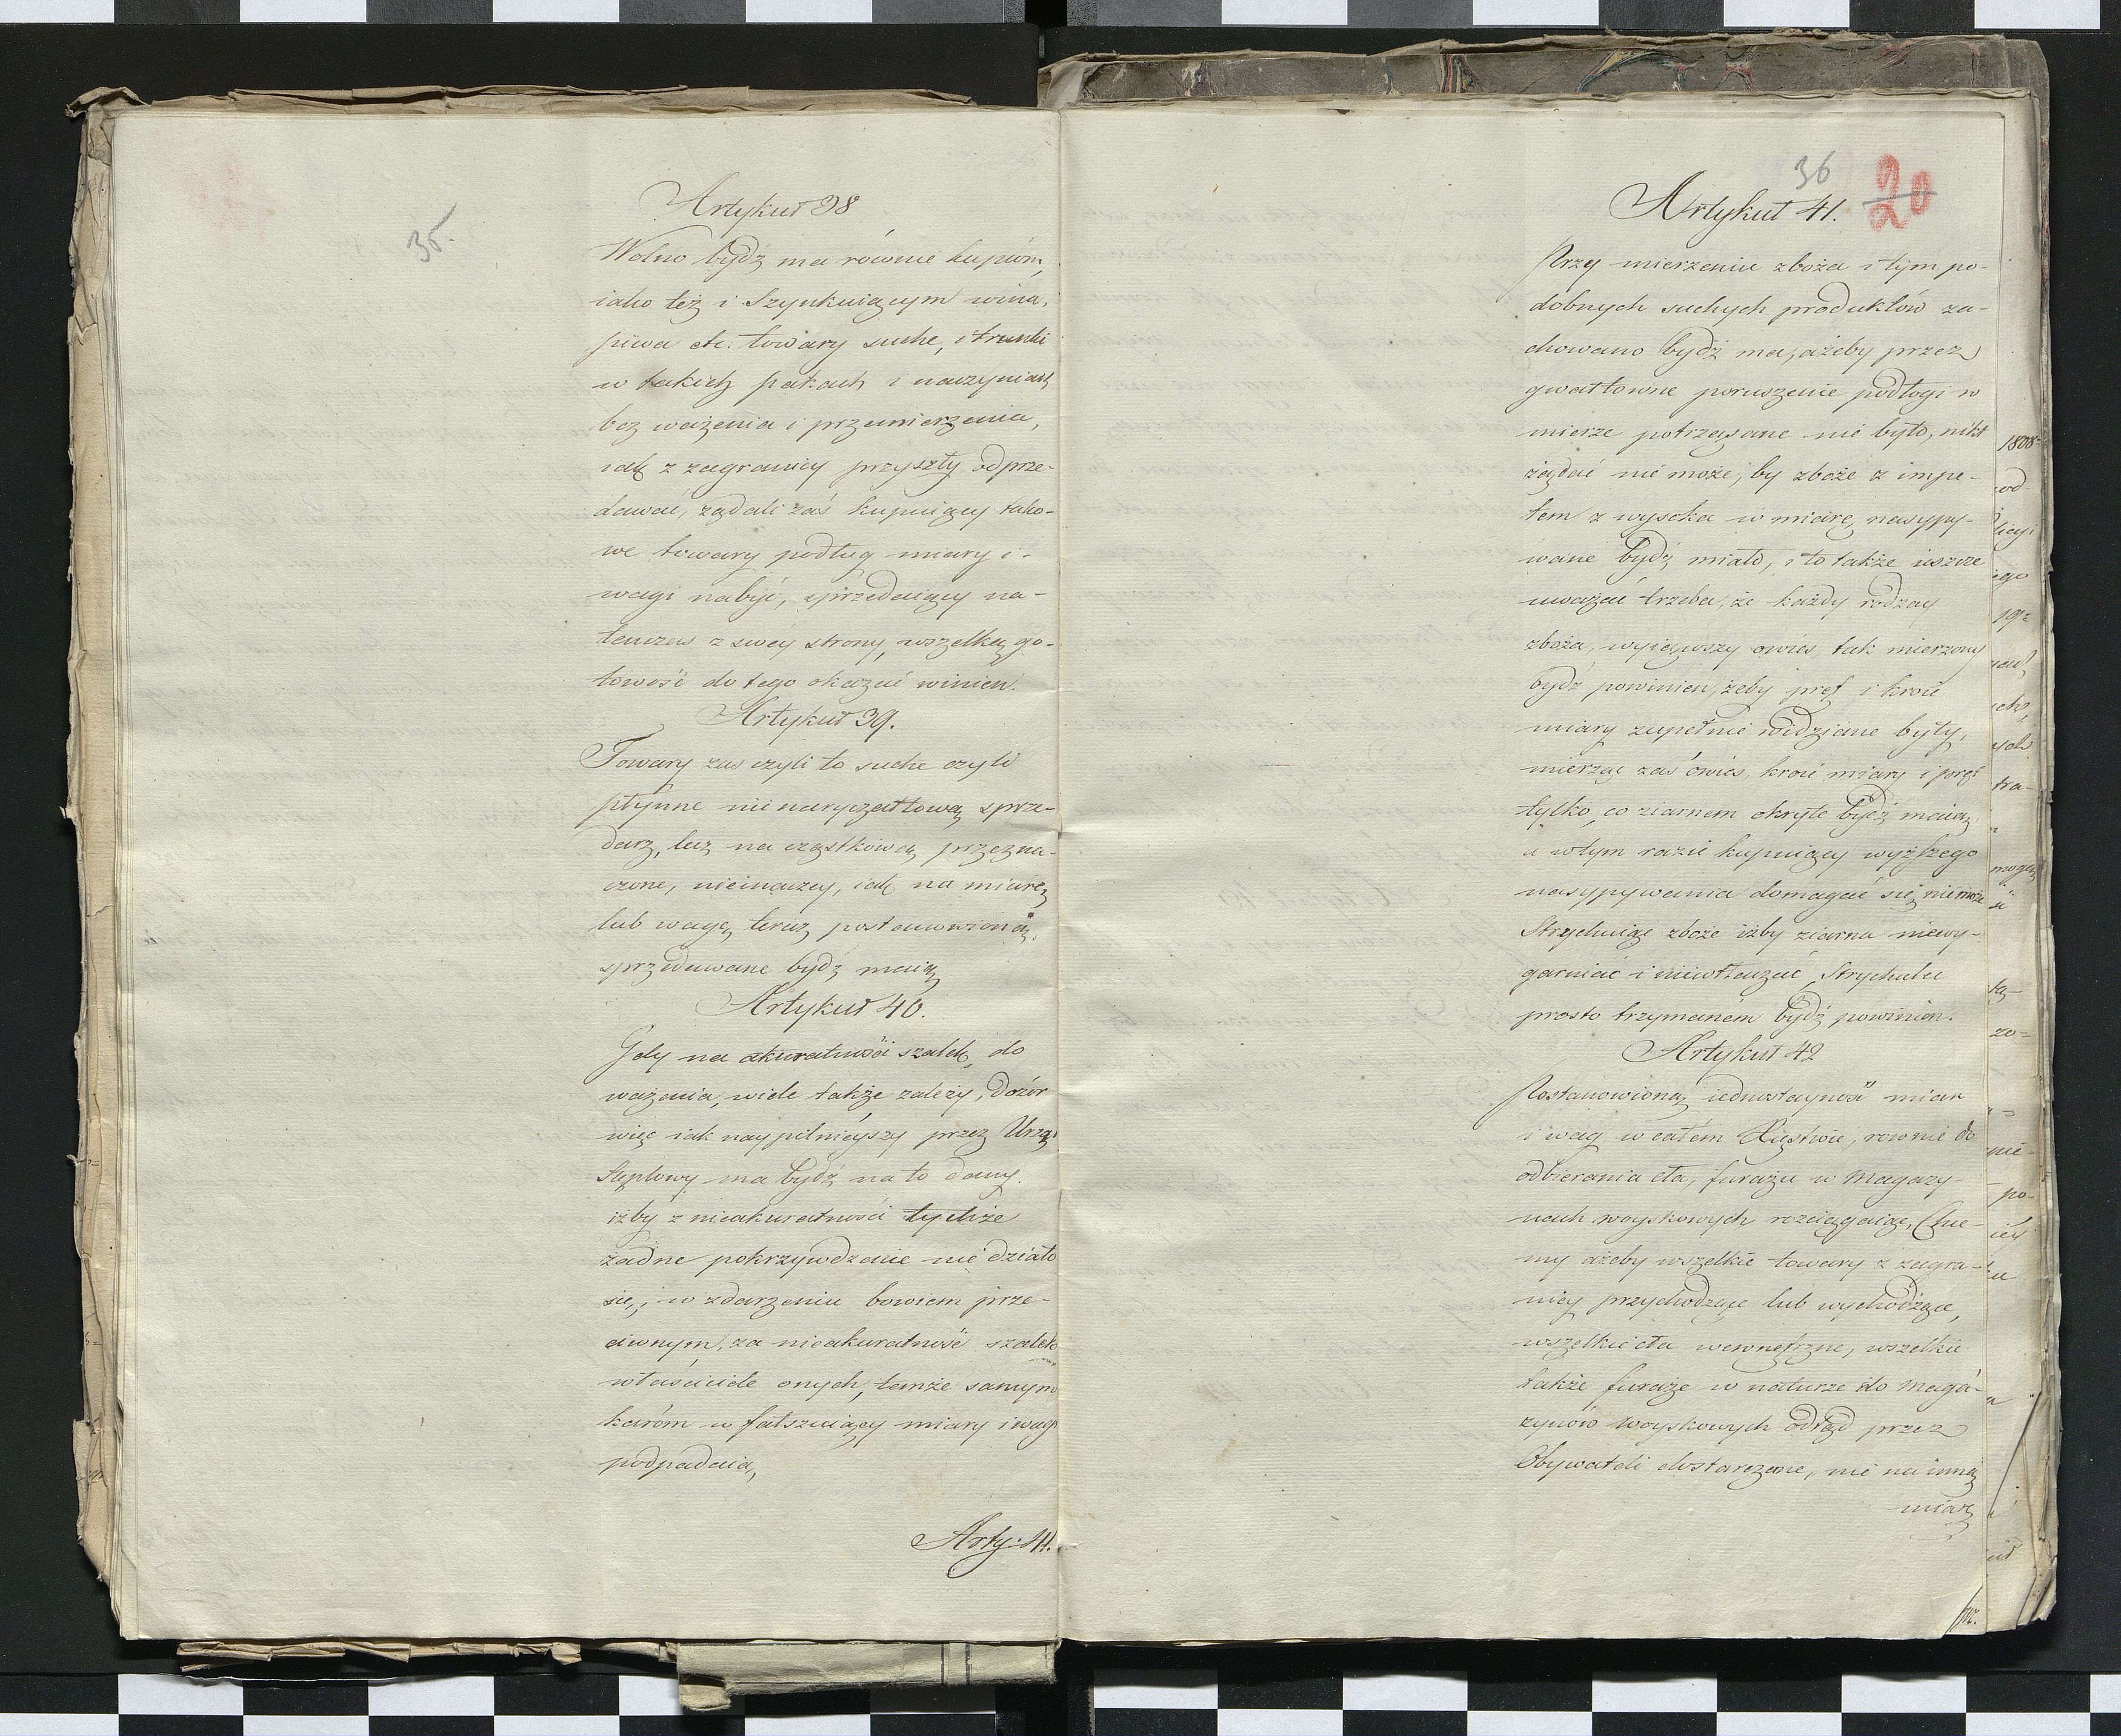 35.
Artykuł 38
Wolno bydź ma równie kupcóm,
iako też i Szynkuiącym wina,
piwa etc. towary suche, i trunki
w takich pakach i naczyniach
bez ważenia i przemierzenia,
iak z zagranicy przyszły odprze-
dawać, żądali zaś kupuiący tako-
we towary podług miary i
wagi nabyć, sprzedaiący na-
tenczas z swey strony, wszelką go-
towość do tego okazać winien.
Artykuł 39.
Towary zaś czyli to suche czyli
płynne nie naryczałtową sprze-
darz, lecz na cząstkową przezna-
czone, nieinaczey, iak na miarę
lub wagę teraz postanowioną,
sprzedawane bydź maią
Artykuł 40.
Gdy na akuratności szalek, do
ważenia, wiele także zależy, Dozór
więc iak naypilnieyszy przez Urząd
Stęplowy ma bydź na to dany.
iżby z nieakuratności tychże
żadne pokrzywdzenie nie działo
się, w zdarzeniu bowiem prze-
ciwnym, za nieakuratność szalek
właściciele onych, temże samym
karóm w fałszuiący miary i wagi
podpadaią,
Arty: 41.
36
20
Artykuł 41.
Przy mierzeniu zboża i tym po-
dobnych suchych produktów za-
chowano bydź ma, ażeby przez
gwałtowne poruszenie podłogi w
mierze potrząsane nie było, nikt
żądać nie może, by zboże z impe-
tem z wysoka w miarę nasypy-
wane bydź miało, i to także ieszcze
uważać trzeba, że każdy rodzay
zboża, wyiąwszy owies, tak mierzony
bydź powinien, żeby pręt i kraie
miary zupełnie widziane były,
mierząc zaś owies, kraie miary i pręt
tylko, co ziarnem okryte bydź maią,
a wtym razie kupuiący wyższego
nasypywania domagać się niemoże
Strychuiąc zboże iżby ziarna niewy-
garniać i niewtłaczać, Strychulec
prosto trzymanem bydź powinien.
Artykuł 42
Postanowioną iednostayność miar
i wag w całem Xięstwie, rownie do
odbierania cła, furażu w Magazy-
nach woyskowych rozciągaiąc, Chce-
my ażeby wszelkie towary z zagra-
nicy przychodzące lub wychodzące,
wszelkie cła wewnętrzne, wszelkie
także furaże w naturze do Maga-
zynów woyskowych odtąd przez
Obywateli dostarczone, nie na inną
miarę